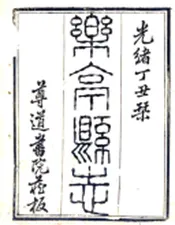 光緒丁丑栞
樂亭縣志
尊道書院藏板